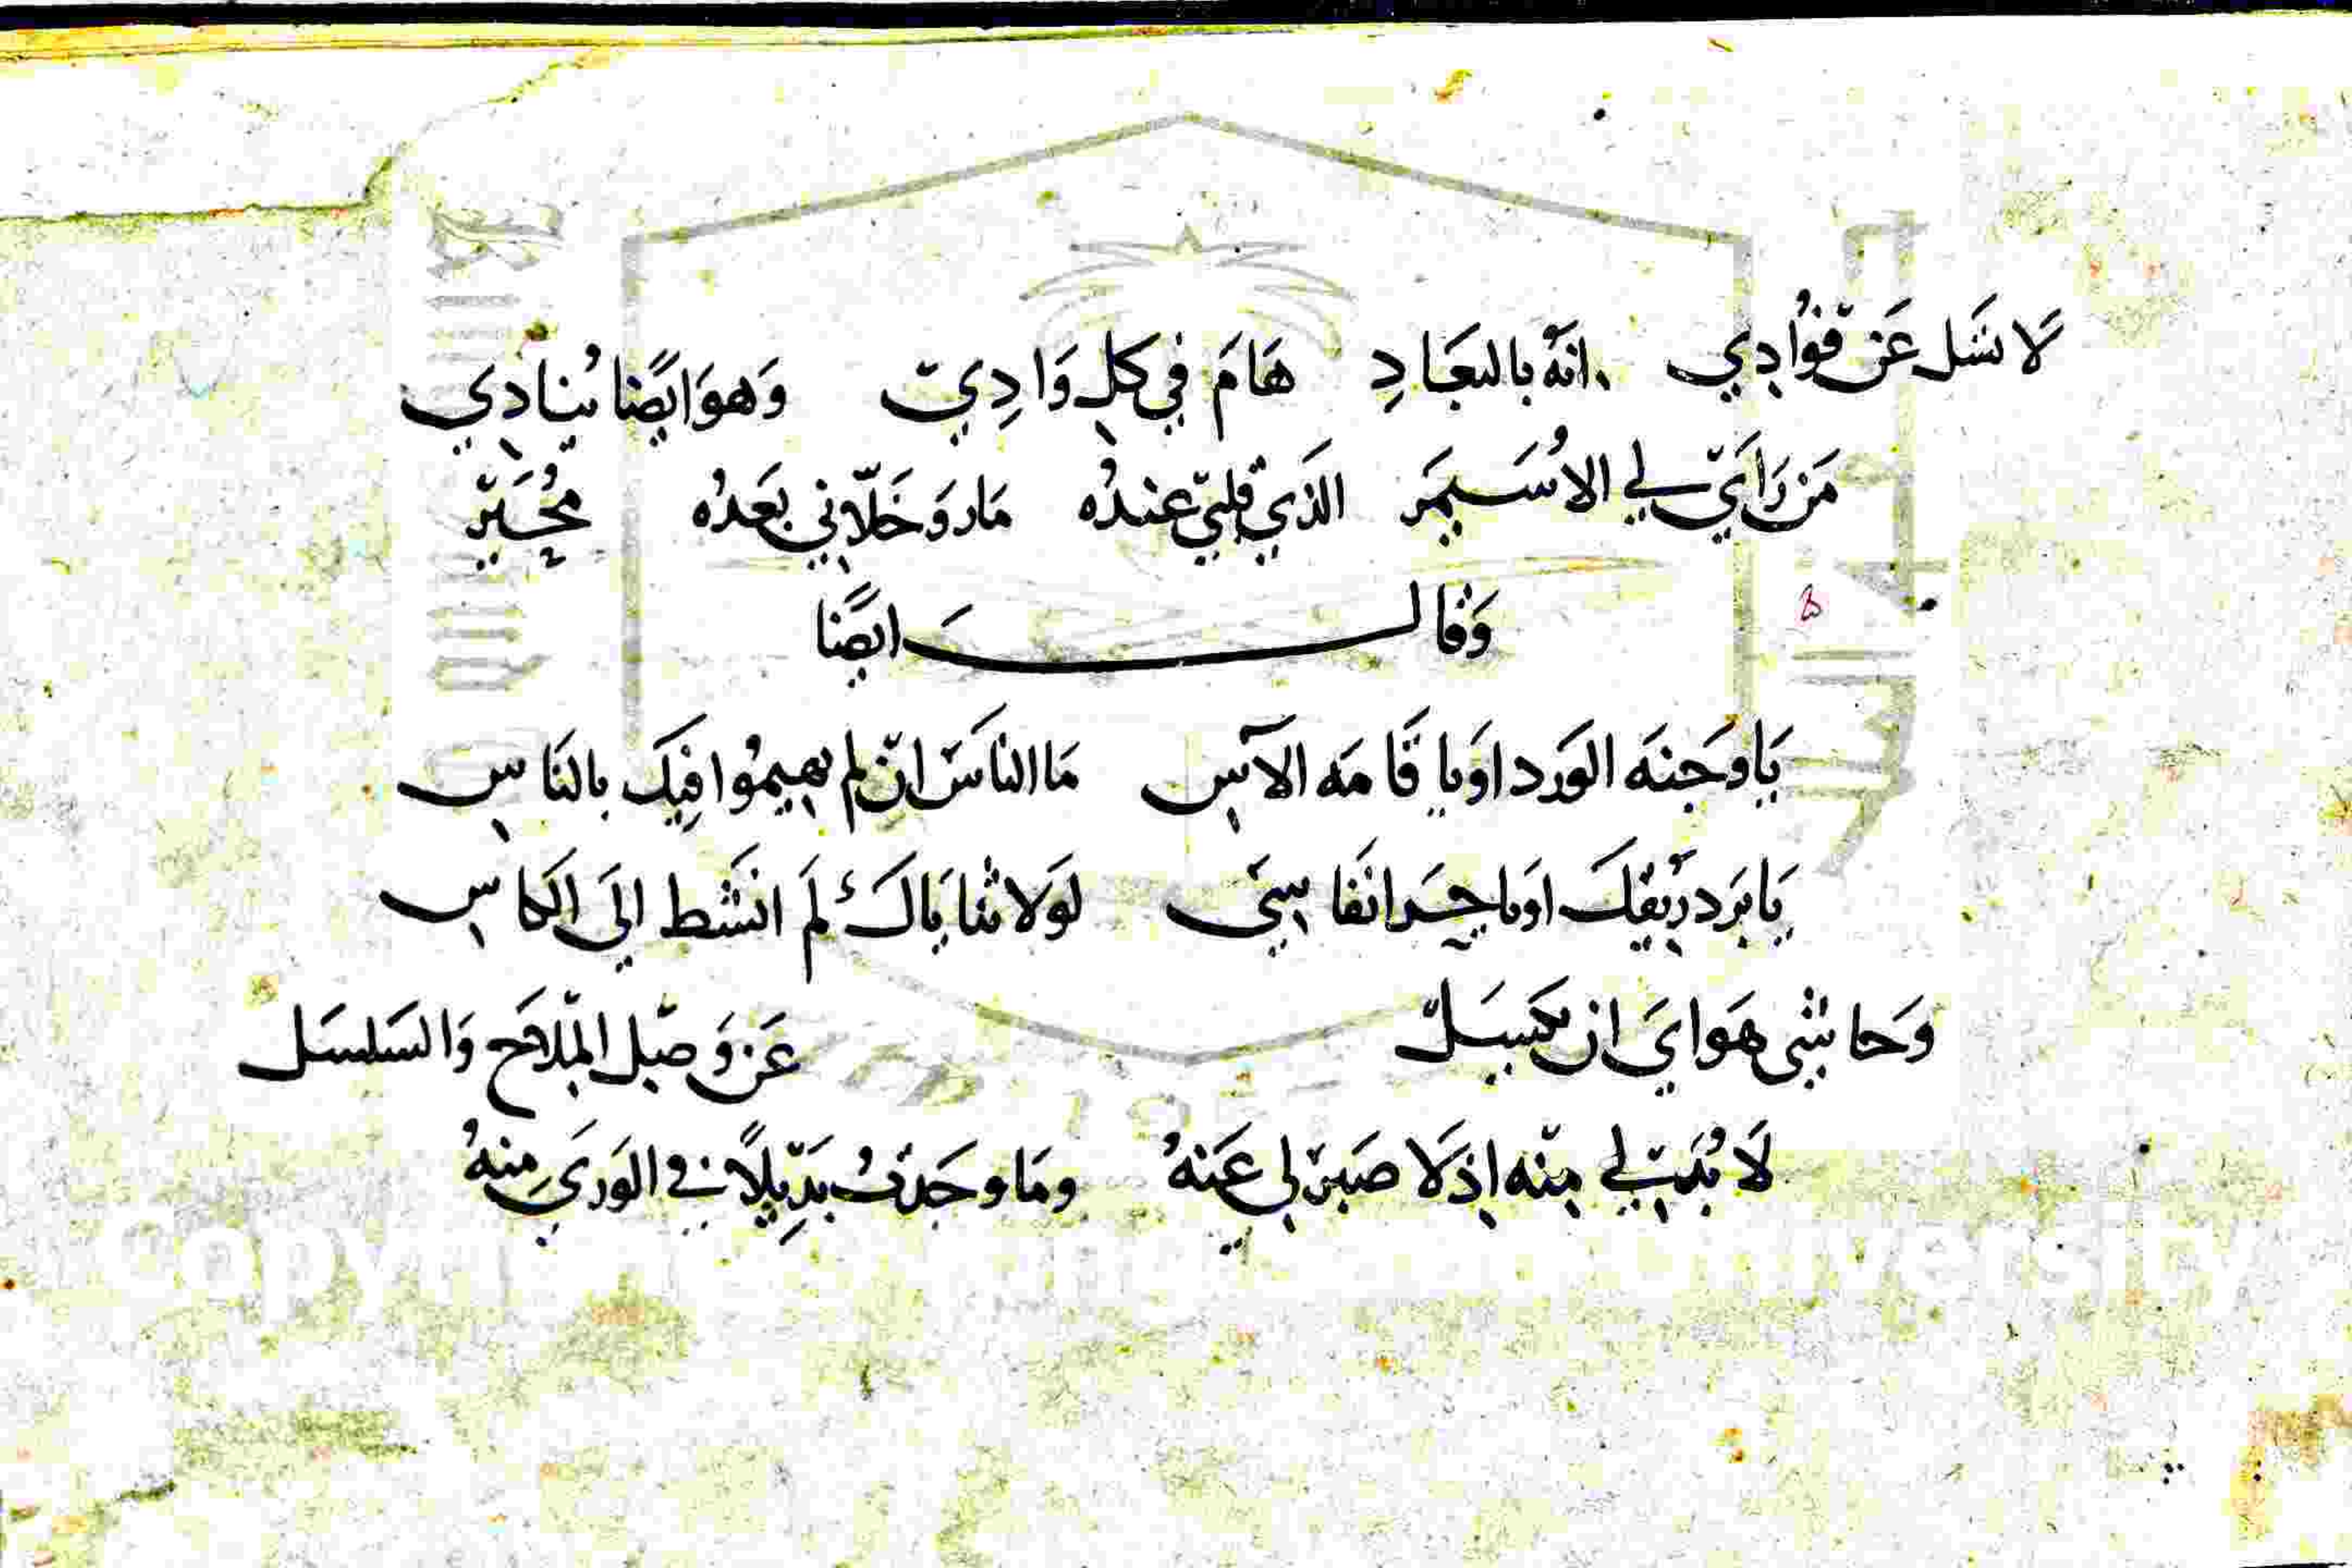 لَا تسَل عَن فؤادِي انهُ بالبعَادِ هَامَ في كل وَادِيّ وَهوَ ايضًا يُنادِي
مَن رَايَ لي الاُسَيمَر الذَي قلبي عندُه مَار وَخَلّاني بعَدُه مُحَيّر
وَقالــــــــَ ايضًا
يَا وجَنهَ الوَرد اوَيا قَامَه الآسِ مَا الناسَ ان لم يهيمُوا فيكَ بالنَاسِ
يَا بَرَد رِيقكَ اوَيا حِرَ انَفاسِي لوَلا ثنايَاكَ لَم انشَط اليَ الكاسِ
وَحاشي هَوايَ ان يسَل عَن وَصل المِلاحِ وَالسَلسَل
لَا بُدَّ لي منه اذ لَا صَبرَ لي عَنهُ ومَا وجَدتُ بَدِيلًا في الوَريَ مِنهُ